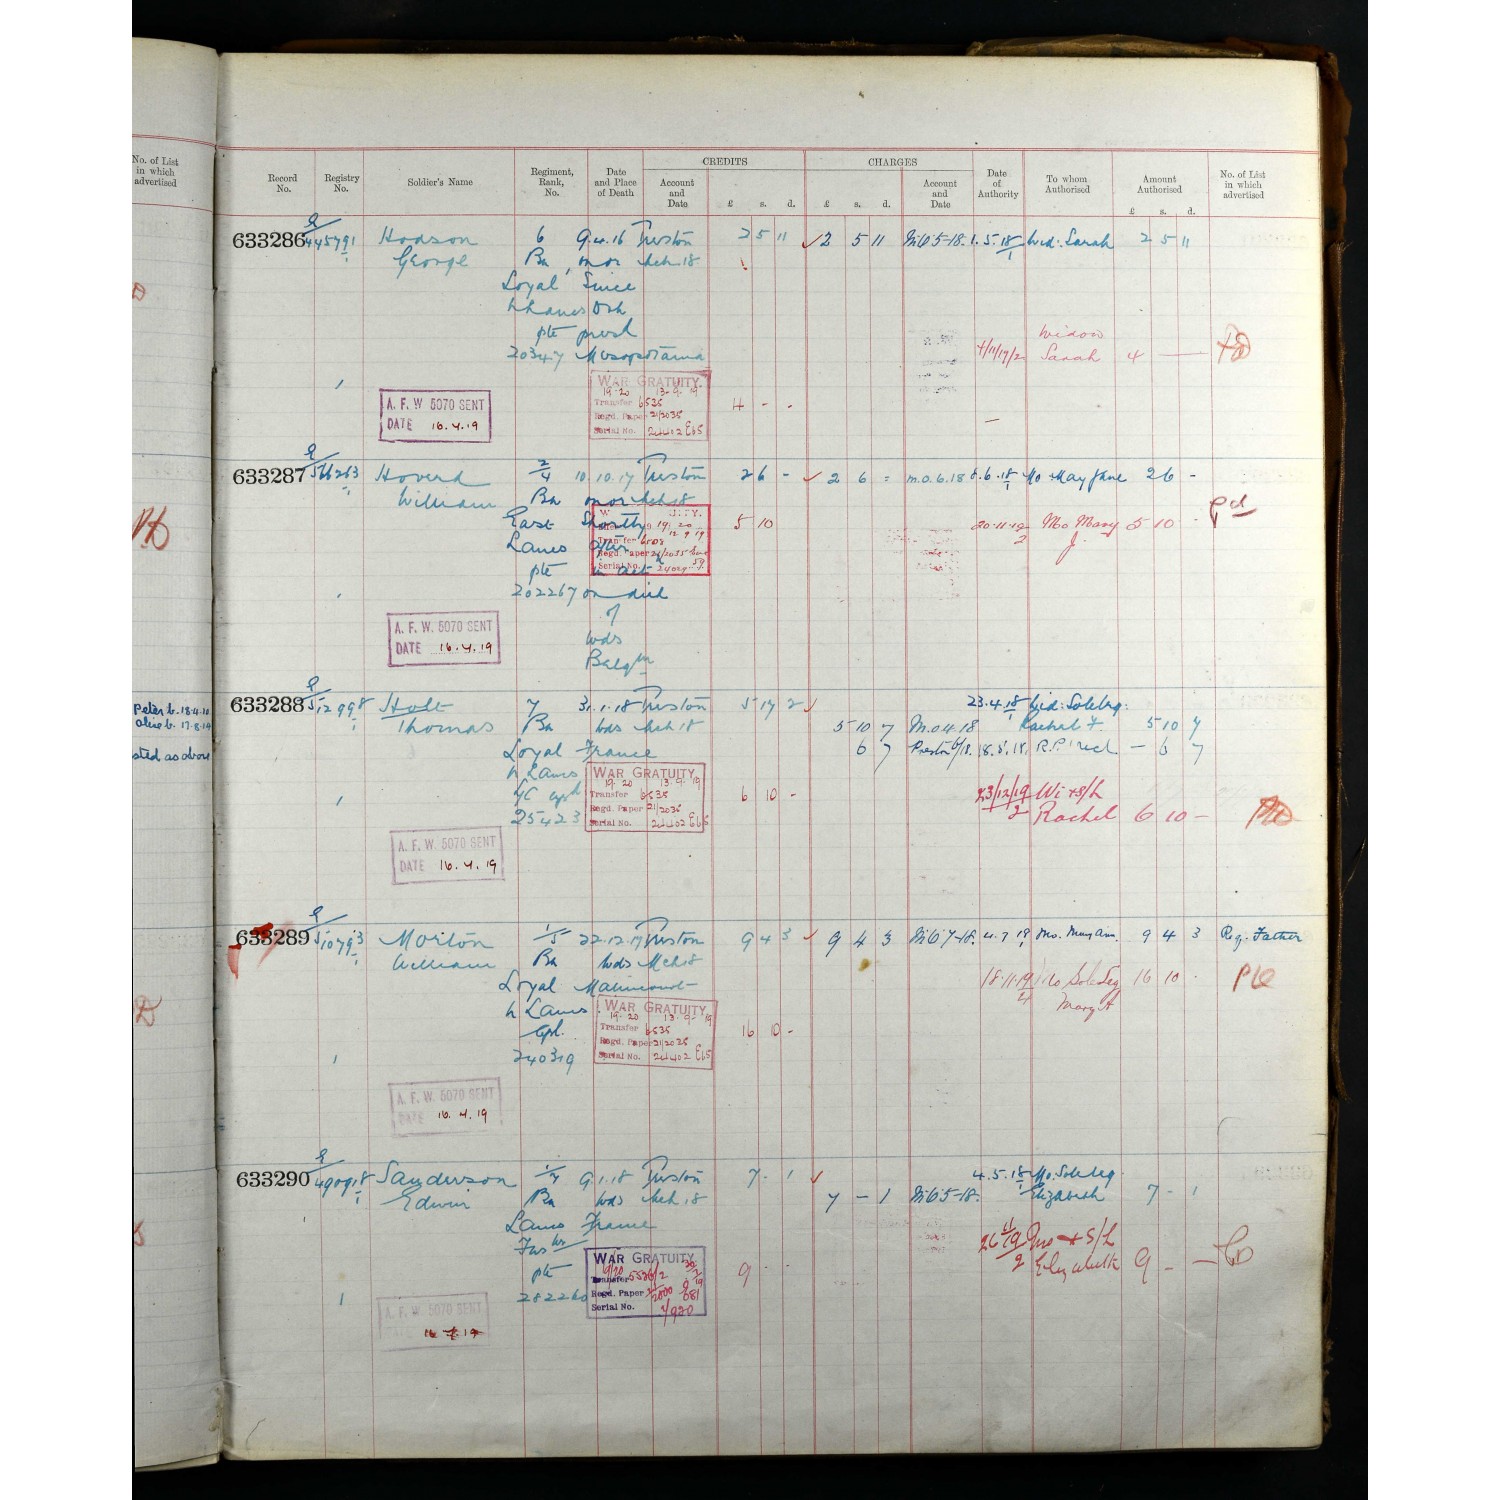 No. of List
in which
advertised
Peter b. 18.4.10
Alice b. 17.8.14
sted as above
CREDITS CHARGES
Record No. Registry No. Soldier's Name Regiment, Rank, No. Date and Place of Death Account and Date £ s. d. £ s. d. Account and Date Date of Authority To whom Authorised Amount Authorised £ s. d. No. of List in which advertised
633286 E/445791/1 Hodson 6 9.4.16 Preston 2 5 11 2 5 11 5-18 1.5.18 Wid: Sarah 2 5 11
George Bn on or Mch 18
Loyal Since
N Lancs Dth
pte presd
20347 Mesopotamia
Widow
Sarah 4
WAR GRATUITY.
19-20 13-9-19
Transfer 6535
Regd. Paper 21/2035
Serial No. 24402 E65
4 - -
A. F. W 5070 SENT
DATE 16.4.19
633287 E/566263/1 Hoverd 2/4 10.10.17 Preston 26 - 26 - M.O.6.18 6.18 Mo May Jane 26 -
William Bn on or Mch 18
East Shortly
Lancs after
pte in act
202267 on died
of
wds
Belgm
5 10 20.11.19 Mo Mary J. 5 10 - Pd
Transfer 6508
Regd. Paper 21/2035
Serial No.
A. F. W. 5070 SENT
DATE 16.4.19
633288 E/512998/1 Holt 7 31.1.18 Preston 5 17 2 23.4.18 Wid: Soleleg:
Thomas Bn wds Mch 18 5 10 7 M.O.4.18 Rachel F. 5 10 7
Loyal France 6 7 Preston 6/18 18.5.18 R.P. recd - 6 7
N Lancs
25423
WAR GRATUITY
19-20 13-9-19
Transfer 6535
Regd. Paper 21/2035
Serial No. 24402 E65
6 10 - 23/12/19 Wi + S/L
Rachel 6 10 -
A. F. W. 5070 SENT
DATE 16.4.19
633289 E/510793/1 Morton 1/5 22.12.17 Preston 9 4 3 9 4 3 7-18. 4.7.18 Mo. Mary Ann. 9 4 3 Reg. Father
William Bn wds Mch 18
Loyal
N Lancs
Cpl.
240319
18.11.19 Mo Soleleg
Mary A 16 10 -
WAR GRATUITY
19-20 13-9-19
Transfer 6535
Regd. Paper 21/2035
Serial No. 24402 E65
16 10 -
A. F. W. 5070 SENT
DATE 16.4.19
633290 E/490918/1 Sanderson 1/7 9.1.18 Preston 7 - 1 4.5.18 Mo. Soleleg
Edwin Bn wds Mch 18 7 - 1 5-18. Elizabeth 7 - 1
Lancs France
Fus
pte
282260
WAR GRATUITY
Transfer
Regd. Paper
Serial No.
9 - - Mo + S/L
Elizabeth 9 - -
A. F. W. 5070 SENT
DATE 16.4.19